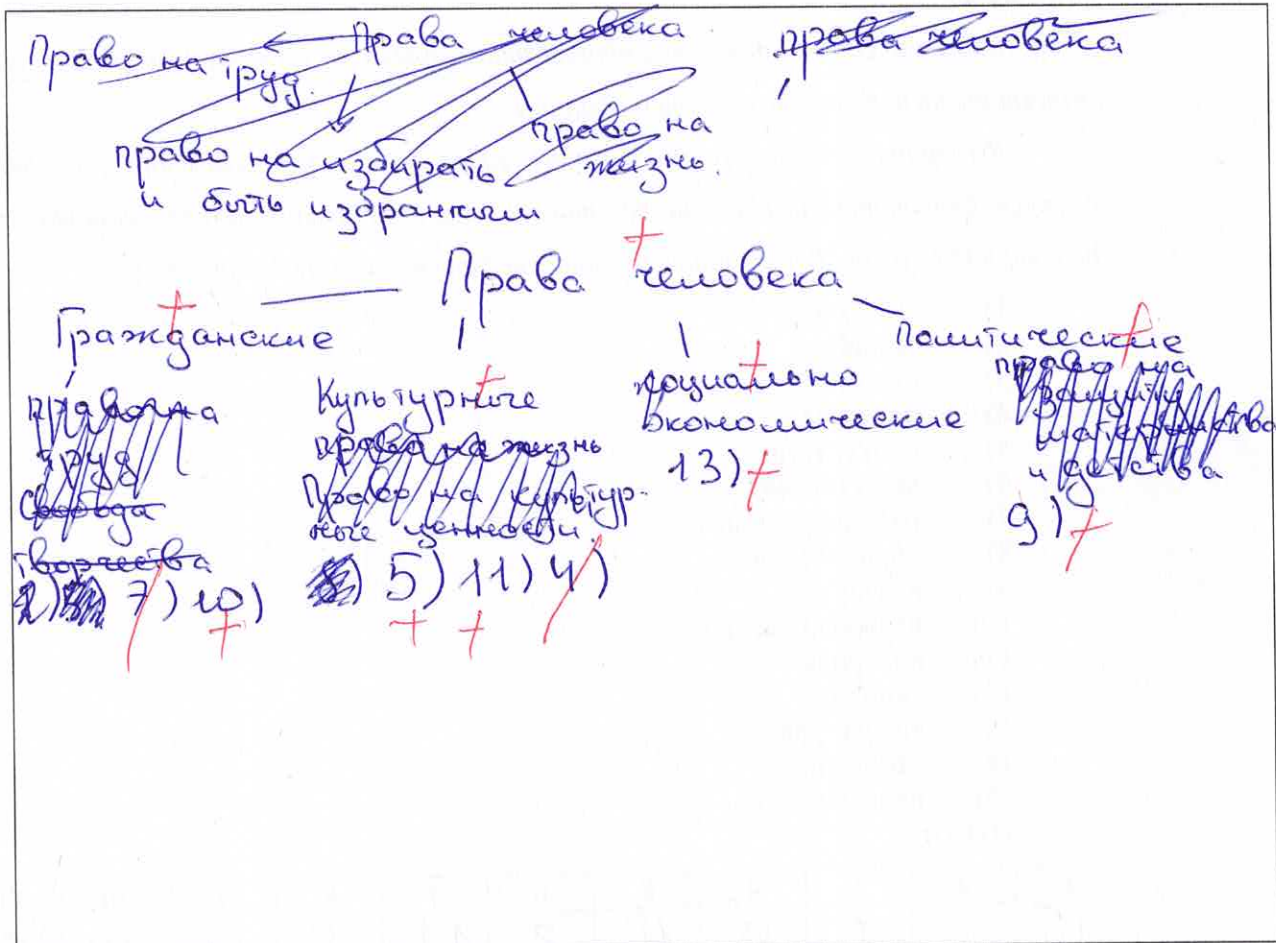 Права человека
права человека
Право на труд.
право на избирать
и быть избранным
право на
жизнь.
Права человека
Гражданские
право на
труд
Свобода
творчества
2) 7) 10)
Культурные
право на жизнь
Право на культур-
ные ценности.
5) 11) 4)
социально
экономические
13)
Политические
право на
защиту
материнства
и детства
9)